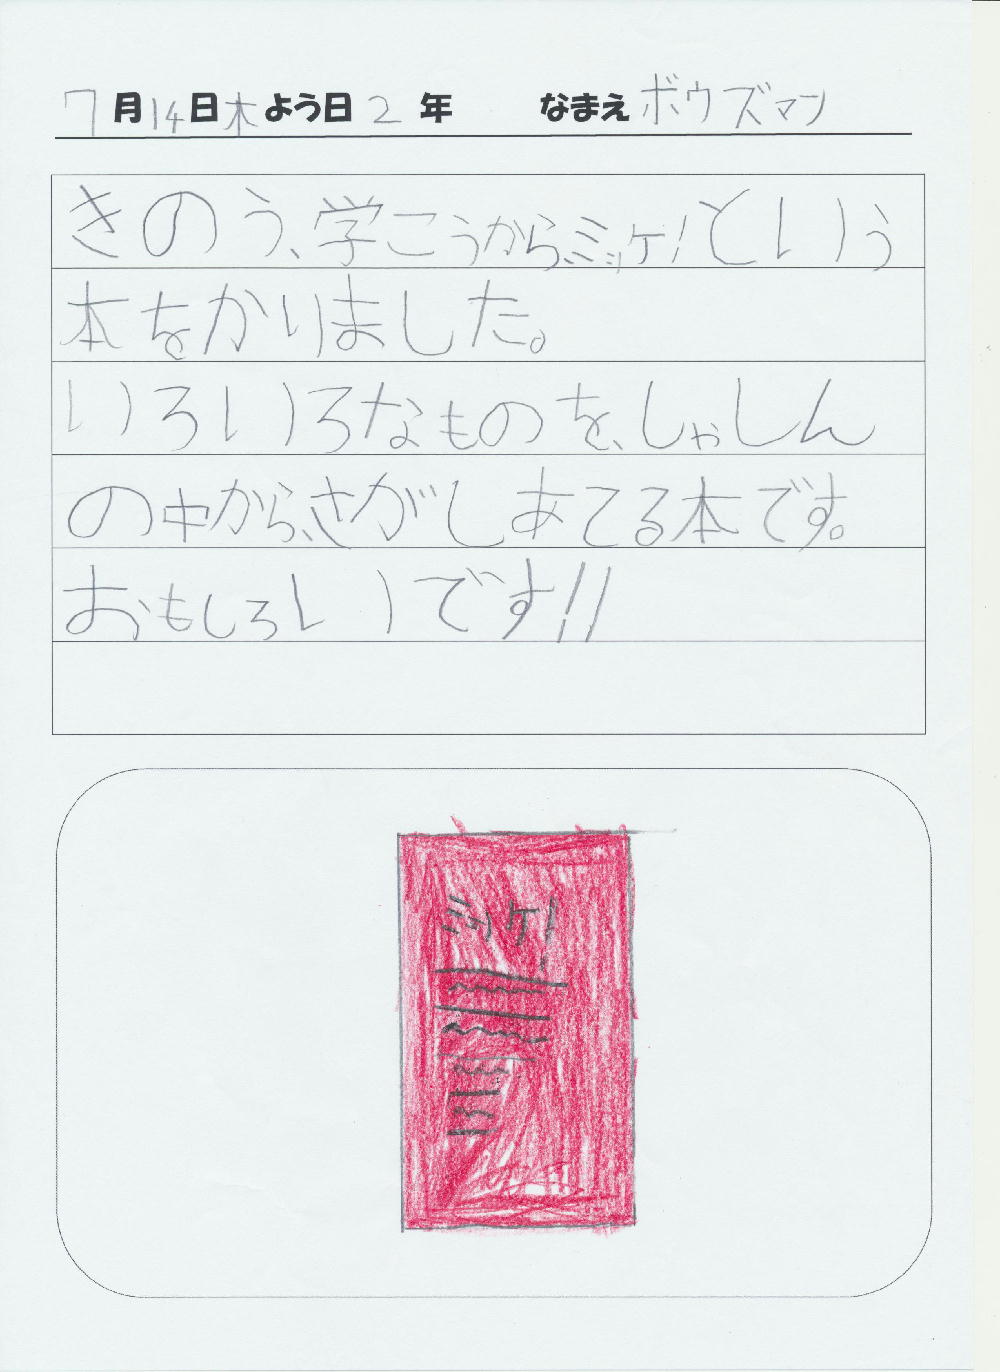 7月14日木よう日2年 なまえボウズマン
きのう、学こうから、ミッケ!という
本をかりました。
いろいろなものを、しゃしん
の中から、さがしあてる本です。
おもしろいです!!
ミッケ!